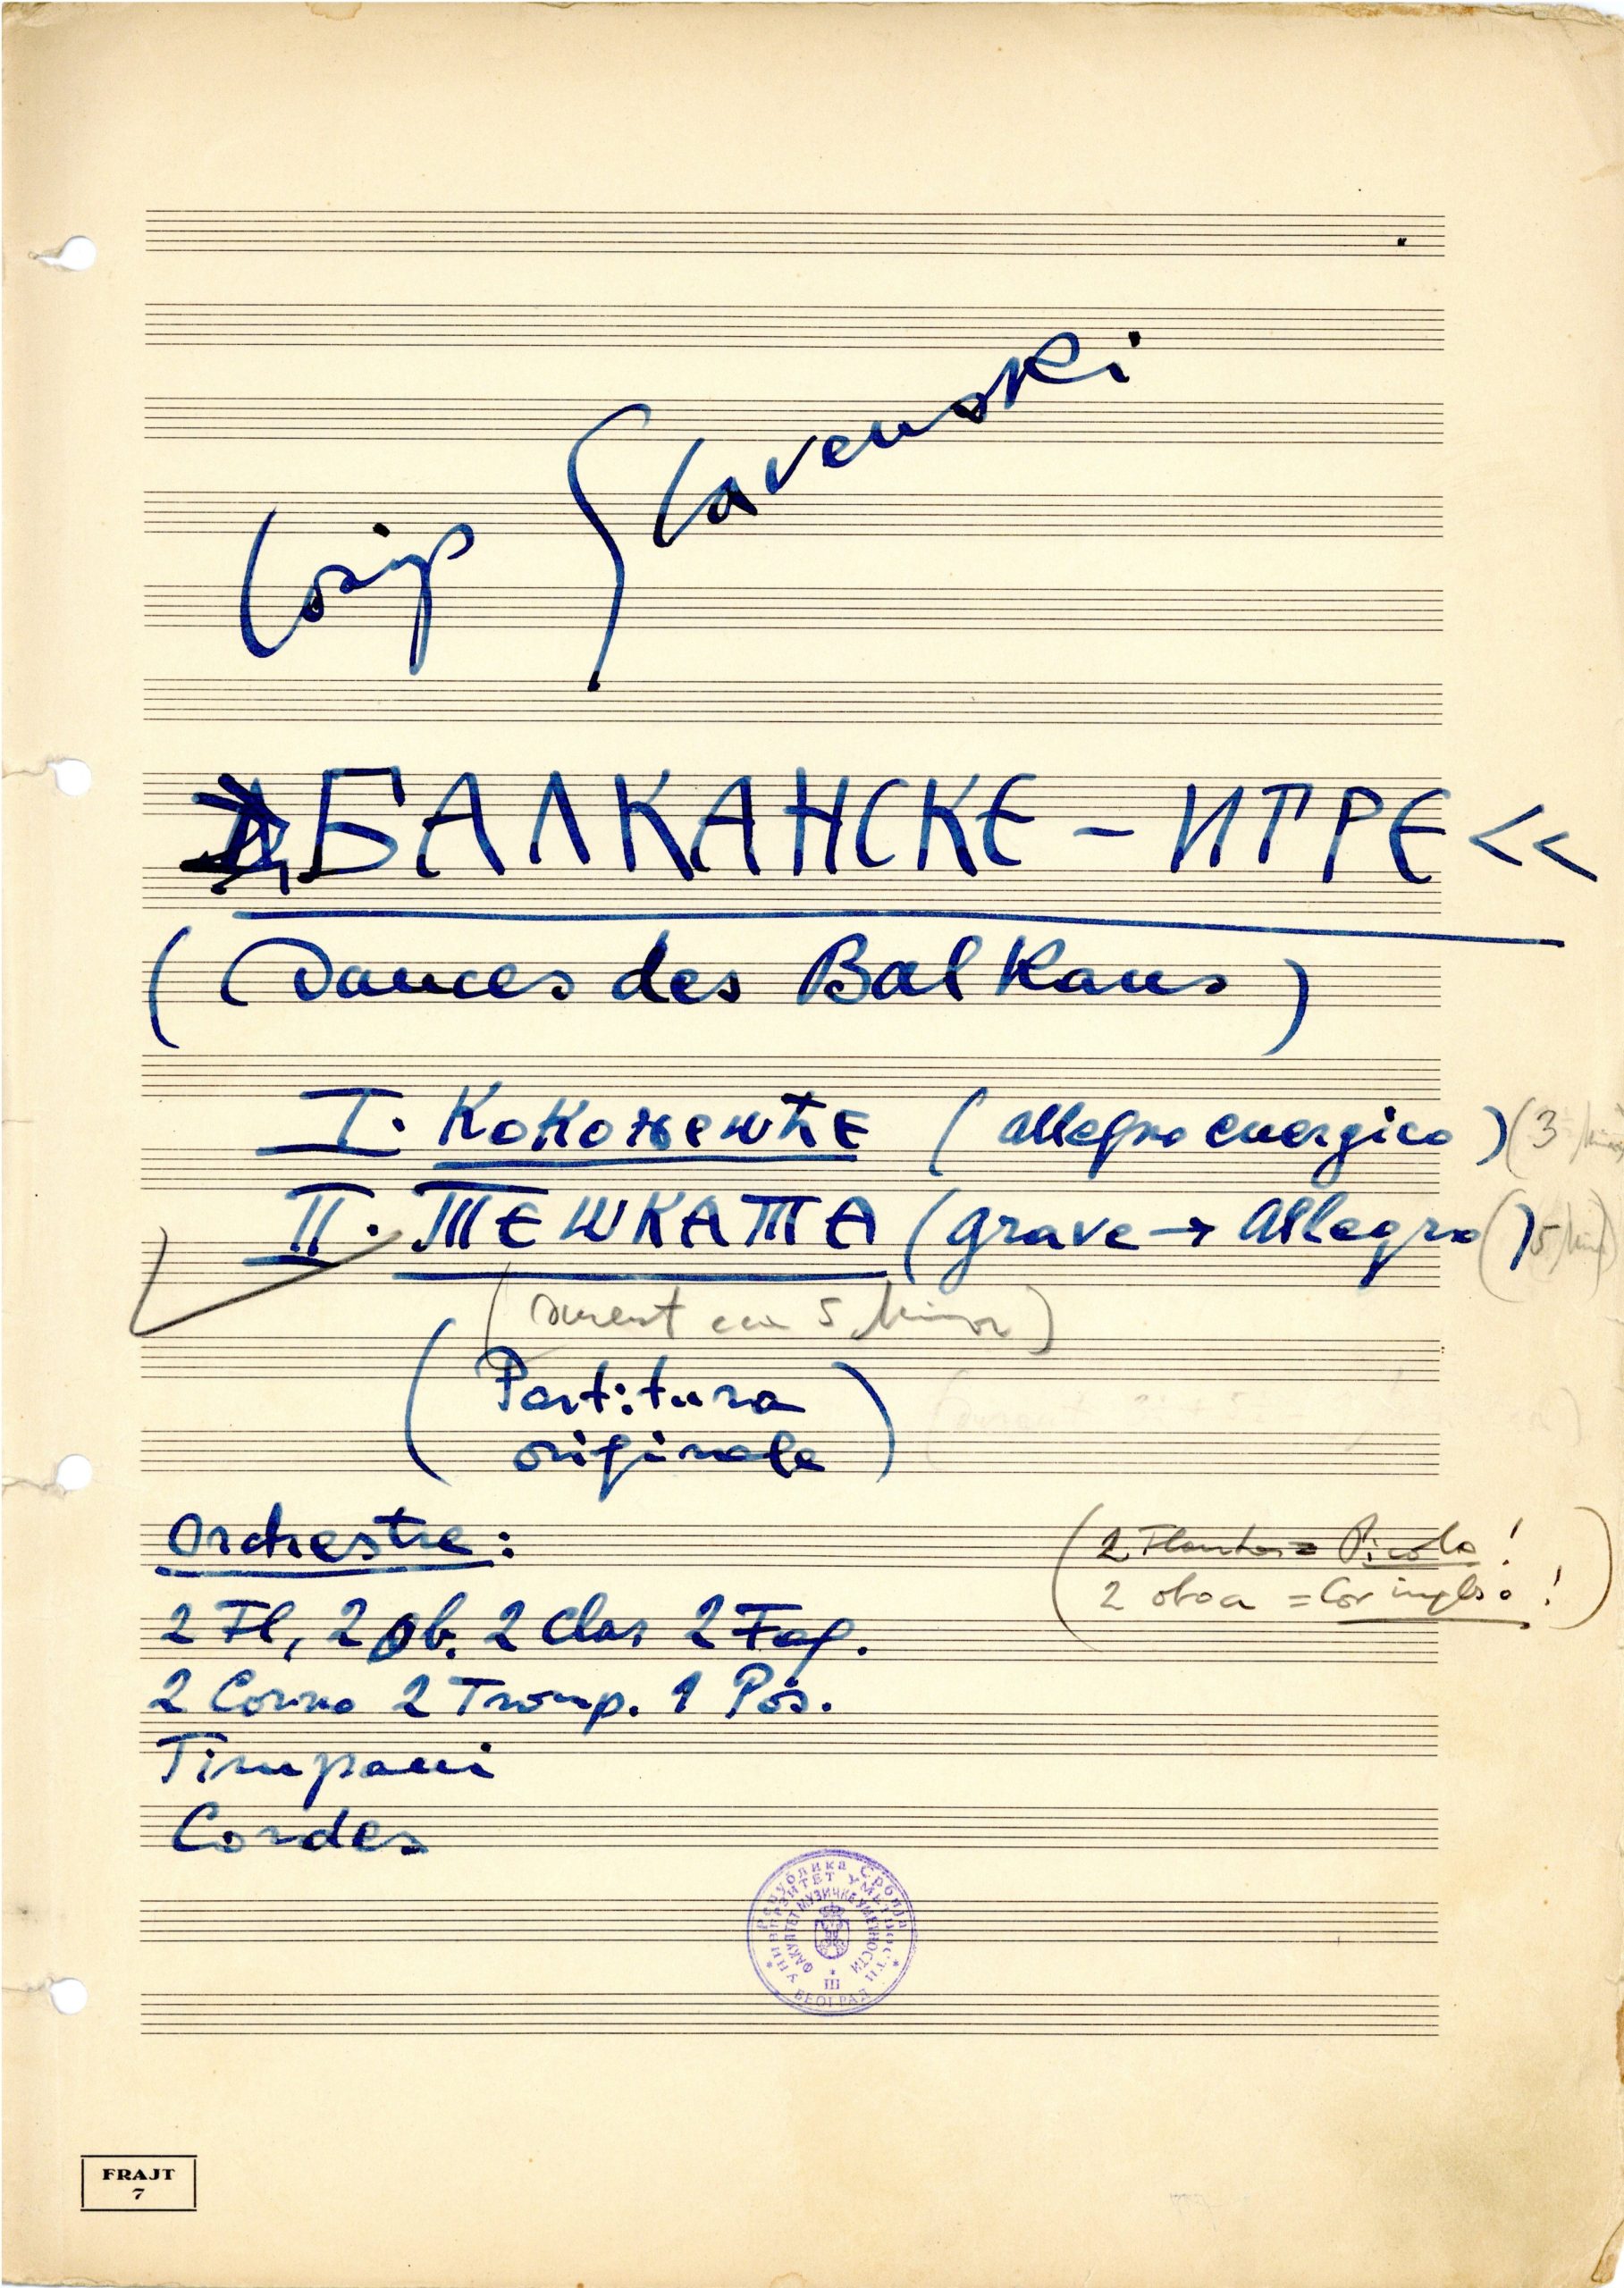 Josip Slavenski
БАЛКАНСКЕ - ИГРЕ <<
(Dances des Balkans)
I. Кокоњешће (allegro energico) (3
II. ТЕШКАТА (grave → Allegro) (5
(durent 5
(Partitura
originale)
Orchestre:
(2 Flauta = Picolo!
2 oboa = Cor inglso!)
2 Fl, 2 Ob. 2 Clar 2 Fag.
2 Corno 2 Tromp. 1 Pos.
Timpani
Cordes
Република Србија
УНИВЕРЗИТЕТ УМЕТНОСТИ
ФАКУЛТЕТ МУЗИЧКЕ УМЕТНОСТИ
III
БЕОГРАД
FRAJT
7